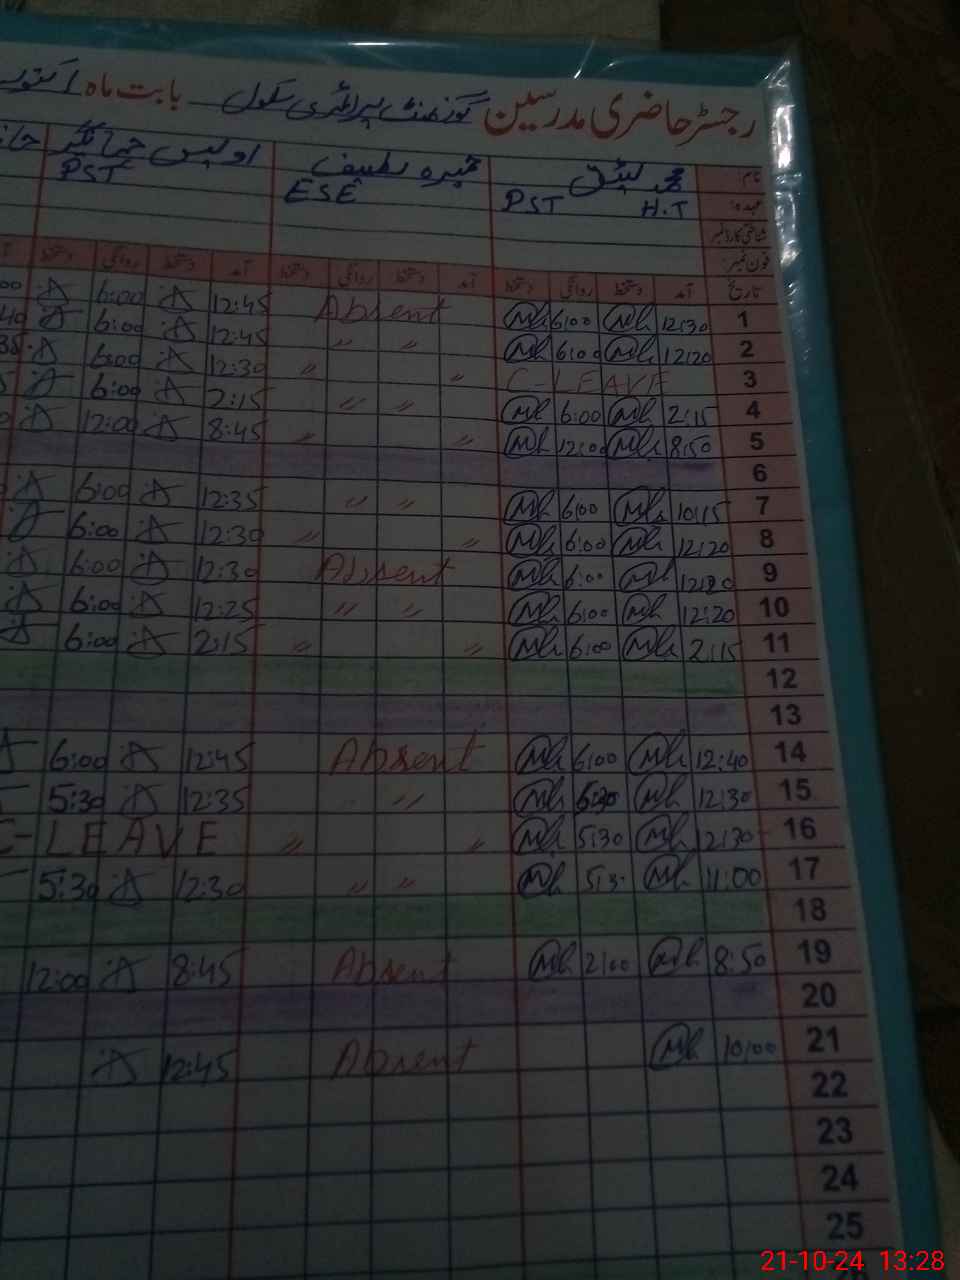 رجسٹر حاضری مدرسین گورنمنٹ پرائمری سکول بابت ماہ
نام: محمد لطیف
عہدہ: H.T PST ESE PST
شناختی کارڈ نمبر
فون نمبر:
تاریخ آمد دستخط روانگی دستخط آمد دستخط روانگی دستخط آمد دستخط روانگی دستخط
1 12:30 6:00 Absent 12:45 6:00
2 12:20 6:00 〃 〃 12:45 6:00
3 C-LEAVE 〃 〃 12:30 6:00
4 2:15 6:00 〃 〃 2:15 6:00
5 8:50 12:00 〃 〃 8:45 12:00
6
7 10:15 6:00 〃 〃 12:35 6:00
8 12:20 6:00 〃 〃 12:30 6:00
9 12:20 6:00 Absent 12:30 6:00
10 12:20 6:00 〃 〃 12:25 6:00
11 2:15 6:00 〃 〃 2:15 6:00
12
13
14 12:40 6:00 Absent 12:45 6:00
15 12:30 〃 12:35 5:30
16 12:30 5:30 〃 〃 C-LEAVE
17 11:00 〃 〃 12:30 5:30
18
19 8:50 Absent 8:45 12:00
20
21 10:00 Absent 12:45
22
23
24
25
21-10-24 13:28